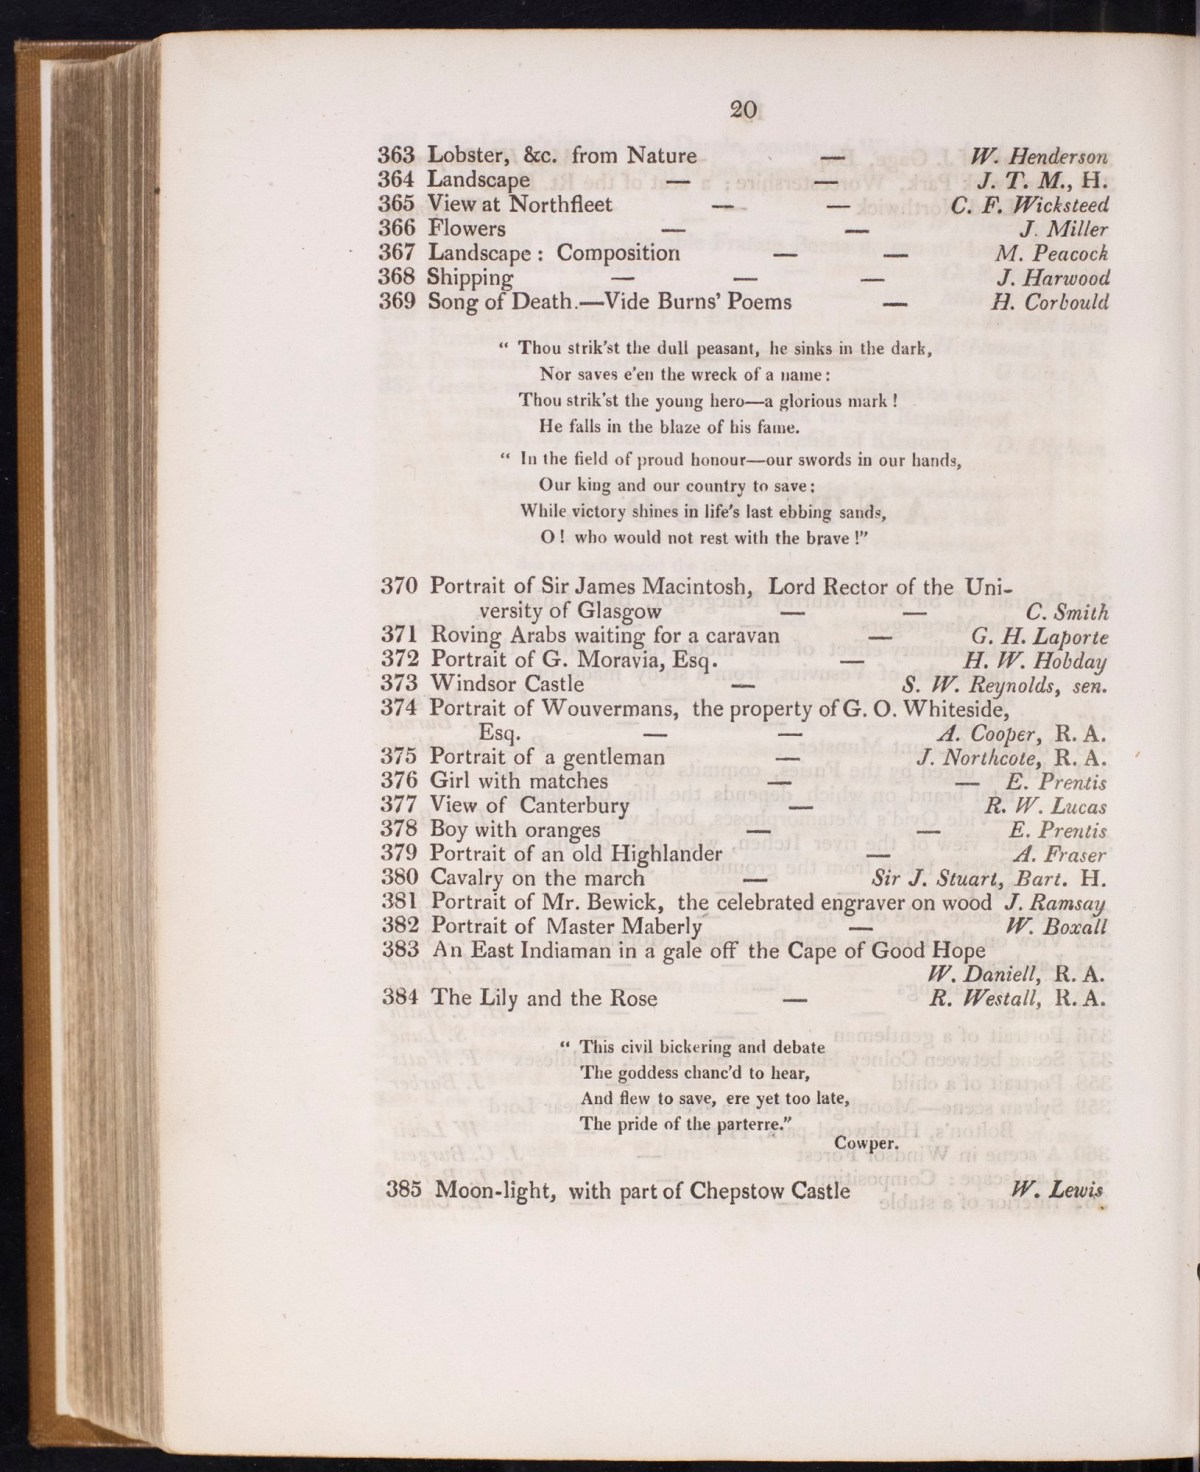 20
363 Lobster, &c. from Nature — W. Henderson
364 Landscape — — J. T. M., H.
365 View at Northfleet — — C. F. Wicksteed
366 Flowers — — J. Miller
367 Landscape: Composition — — M. Peacock
368 Shipping — — — J. Harwood
369 Song of Death.—Vide Burns' Poems — H. Corbould
“ Thou strik'st the dull peasant, he sinks in the dark,
Nor saves e'en the wreck of a name:
Thou strik'st the young hero—a glorious mark!
He falls in the blaze of his fame.
“ In the field of proud honour—our swords in our hands,
Our king and our country to save;
While victory shines in life's last ebbing sands,
O! who would not rest with the brave!”
370 Portrait of Sir James Macintosh, Lord Rector of the Uni-
versity of Glasgow — — C. Smith
371 Roving Arabs waiting for a caravan — G. H. Laporte
372 Portrait of G. Moravia, Esq. — H. W. Hobday
373 Windsor Castle — S. W. Reynolds, sen.
374 Portrait of Wouvermans, the property of G. O. Whiteside,
Esq. — — A. Cooper, R. A.
375 Portrait of a gentleman — J. Northcote, R. A.
376 Girl with matches — — E. Prentis
377 View of Canterbury — R. W. Lucas
378 Boy with oranges — — E. Prentis
379 Portrait of an old Highlander — A. Fraser
380 Cavalry on the march — Sir J. Stuart, Bart. H.
381 Portrait of Mr. Bewick, the celebrated engraver on wood J. Ramsay
382 Portrait of Master Maberly — W. Boxall
383 An East Indiaman in a gale off the Cape of Good Hope
W. Daniell, R. A.
384 The Lily and the Rose — R. Westall, R. A.
“ This civil bickering and debate
The goddess chanc'd to hear,
And flew to save, ere yet too late,
The pride of the parterre.”
Cowper.
385 Moon-light, with part of Chepstow Castle W. Lewis